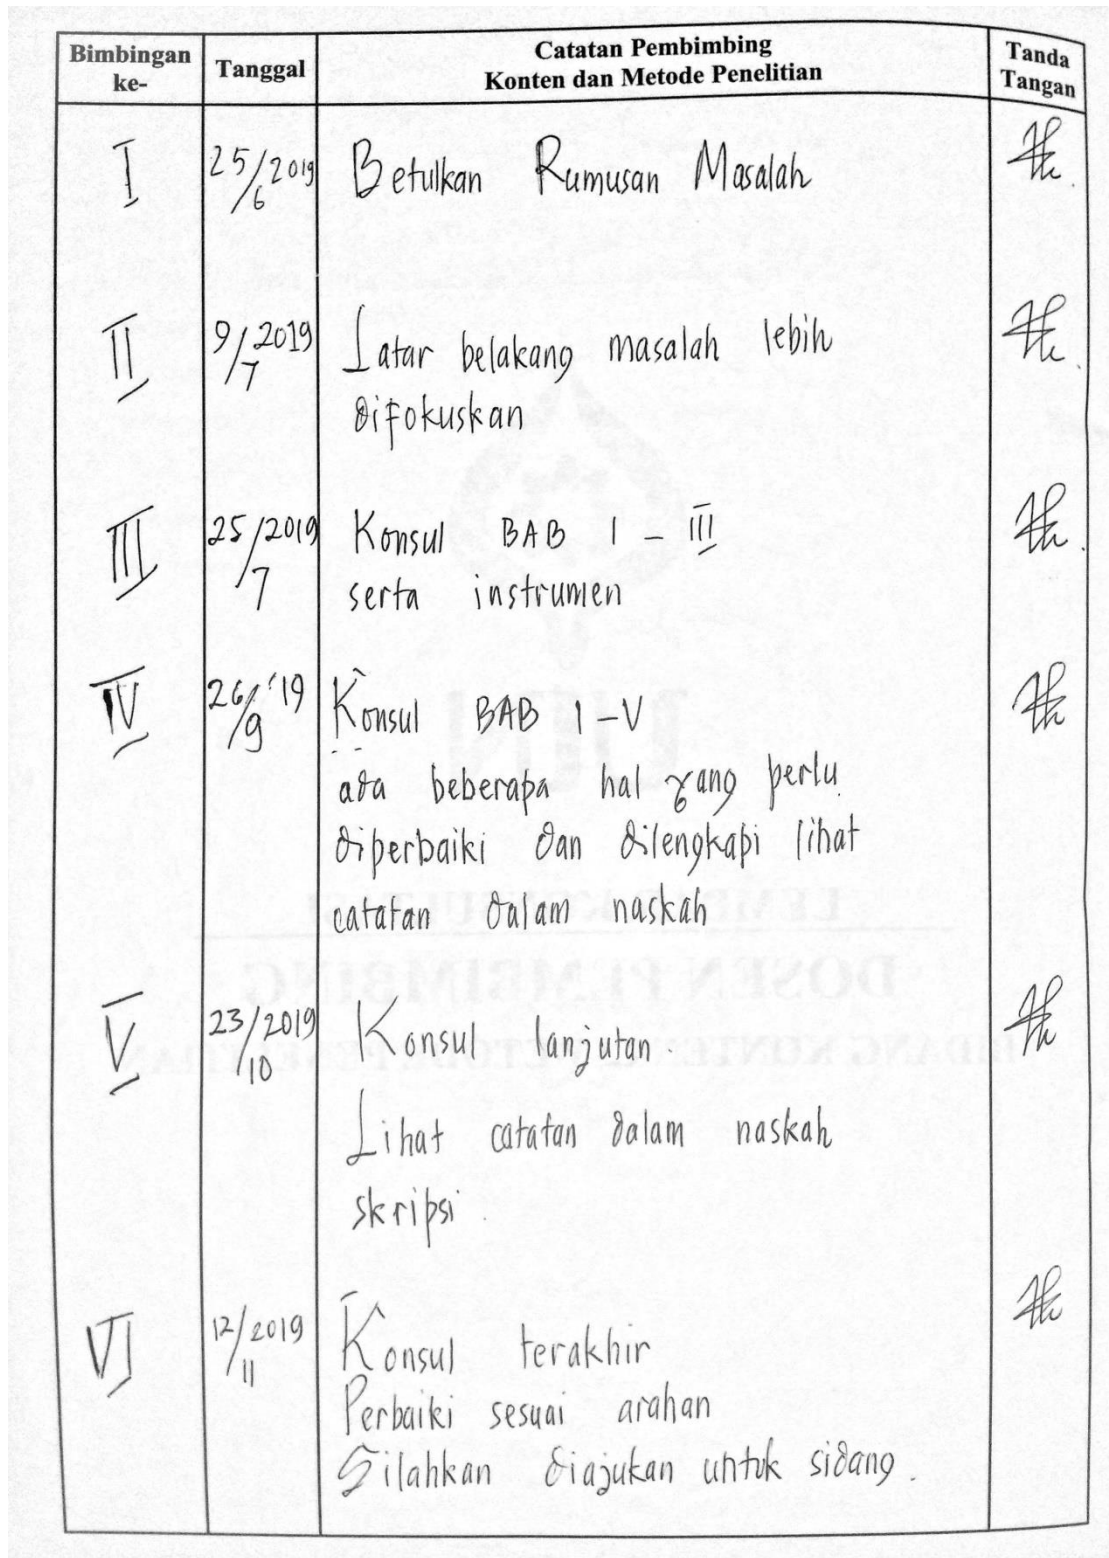 Bimbingan ke-
Tanggal
Catatan Pembimbing
Konten dan Metode Penelitian
Tanda Tangan
I 25/6 2019 Betulkan Rumusan Masalah
II 9/7 2019 Latar belakang masalah lebih
difokuskan
III 25/7 2019 Konsul BAB I - III
serta instrumen
IV 26/9 '19 Konsul BAB I - V
ada beberapa hal yang perlu
diperbaiki dan dilengkapi lihat
catatan dalam naskah
V 23/10 2019 Konsul lanjutan.
Lihat catatan dalam naskah
skripsi.
VI 12/11 2019 Konsul terakhir
Perbaiki sesuai arahan
Silahkan diajukan untuk sidang.